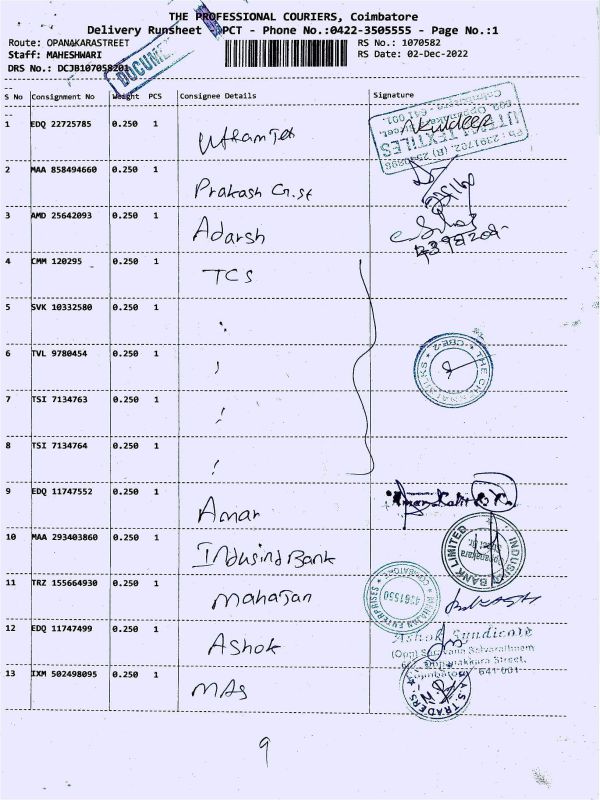 THE PROFESSIONAL COURIERS, Coimbatore
Delivery Runsheet PCT - Phone No.:0422-3505555 - Page No.:1
Route: OPANAKARASTREET RS No.: 1070582
Staff: MAHESHWARI RS Date: 02-Dec-2022
DRS No.: DCJB1070582
DOCUME
S No Consignment No Weight PCS Consignee Details Signature
UTTAM TEXTILES
1 EDQ 22725785 0.250 1
2 MAA 858494660 0.250 1 Prakash G.st
3 AMD 25642093 0.250 1 Adarsh
4 CMM 120295 0.250 1 TCS
5 SVK 10332580 0.250 1
6 TVL 9780454 0.250 1
THE CHENNAI SILKS CBE-2
7 TSI 7134763 0.250 1
8 TSI 7134764 0.250 1
9 EDQ 11747552 0.250 1 Amar
10 MAA 293403860 0.250 1 Indusind Bank
INDUSIND BANK LIMITED
11 TRZ 155664930 0.250 1 Mahajan
ENTERPRISES COIMBATORE
12 EDQ 11747499 0.250 1 Ashok
Ashok Syndicate
Street,
Coimbatore 641 001
13 IXM 502498095 0.250 1 MAS
TRADERS
9